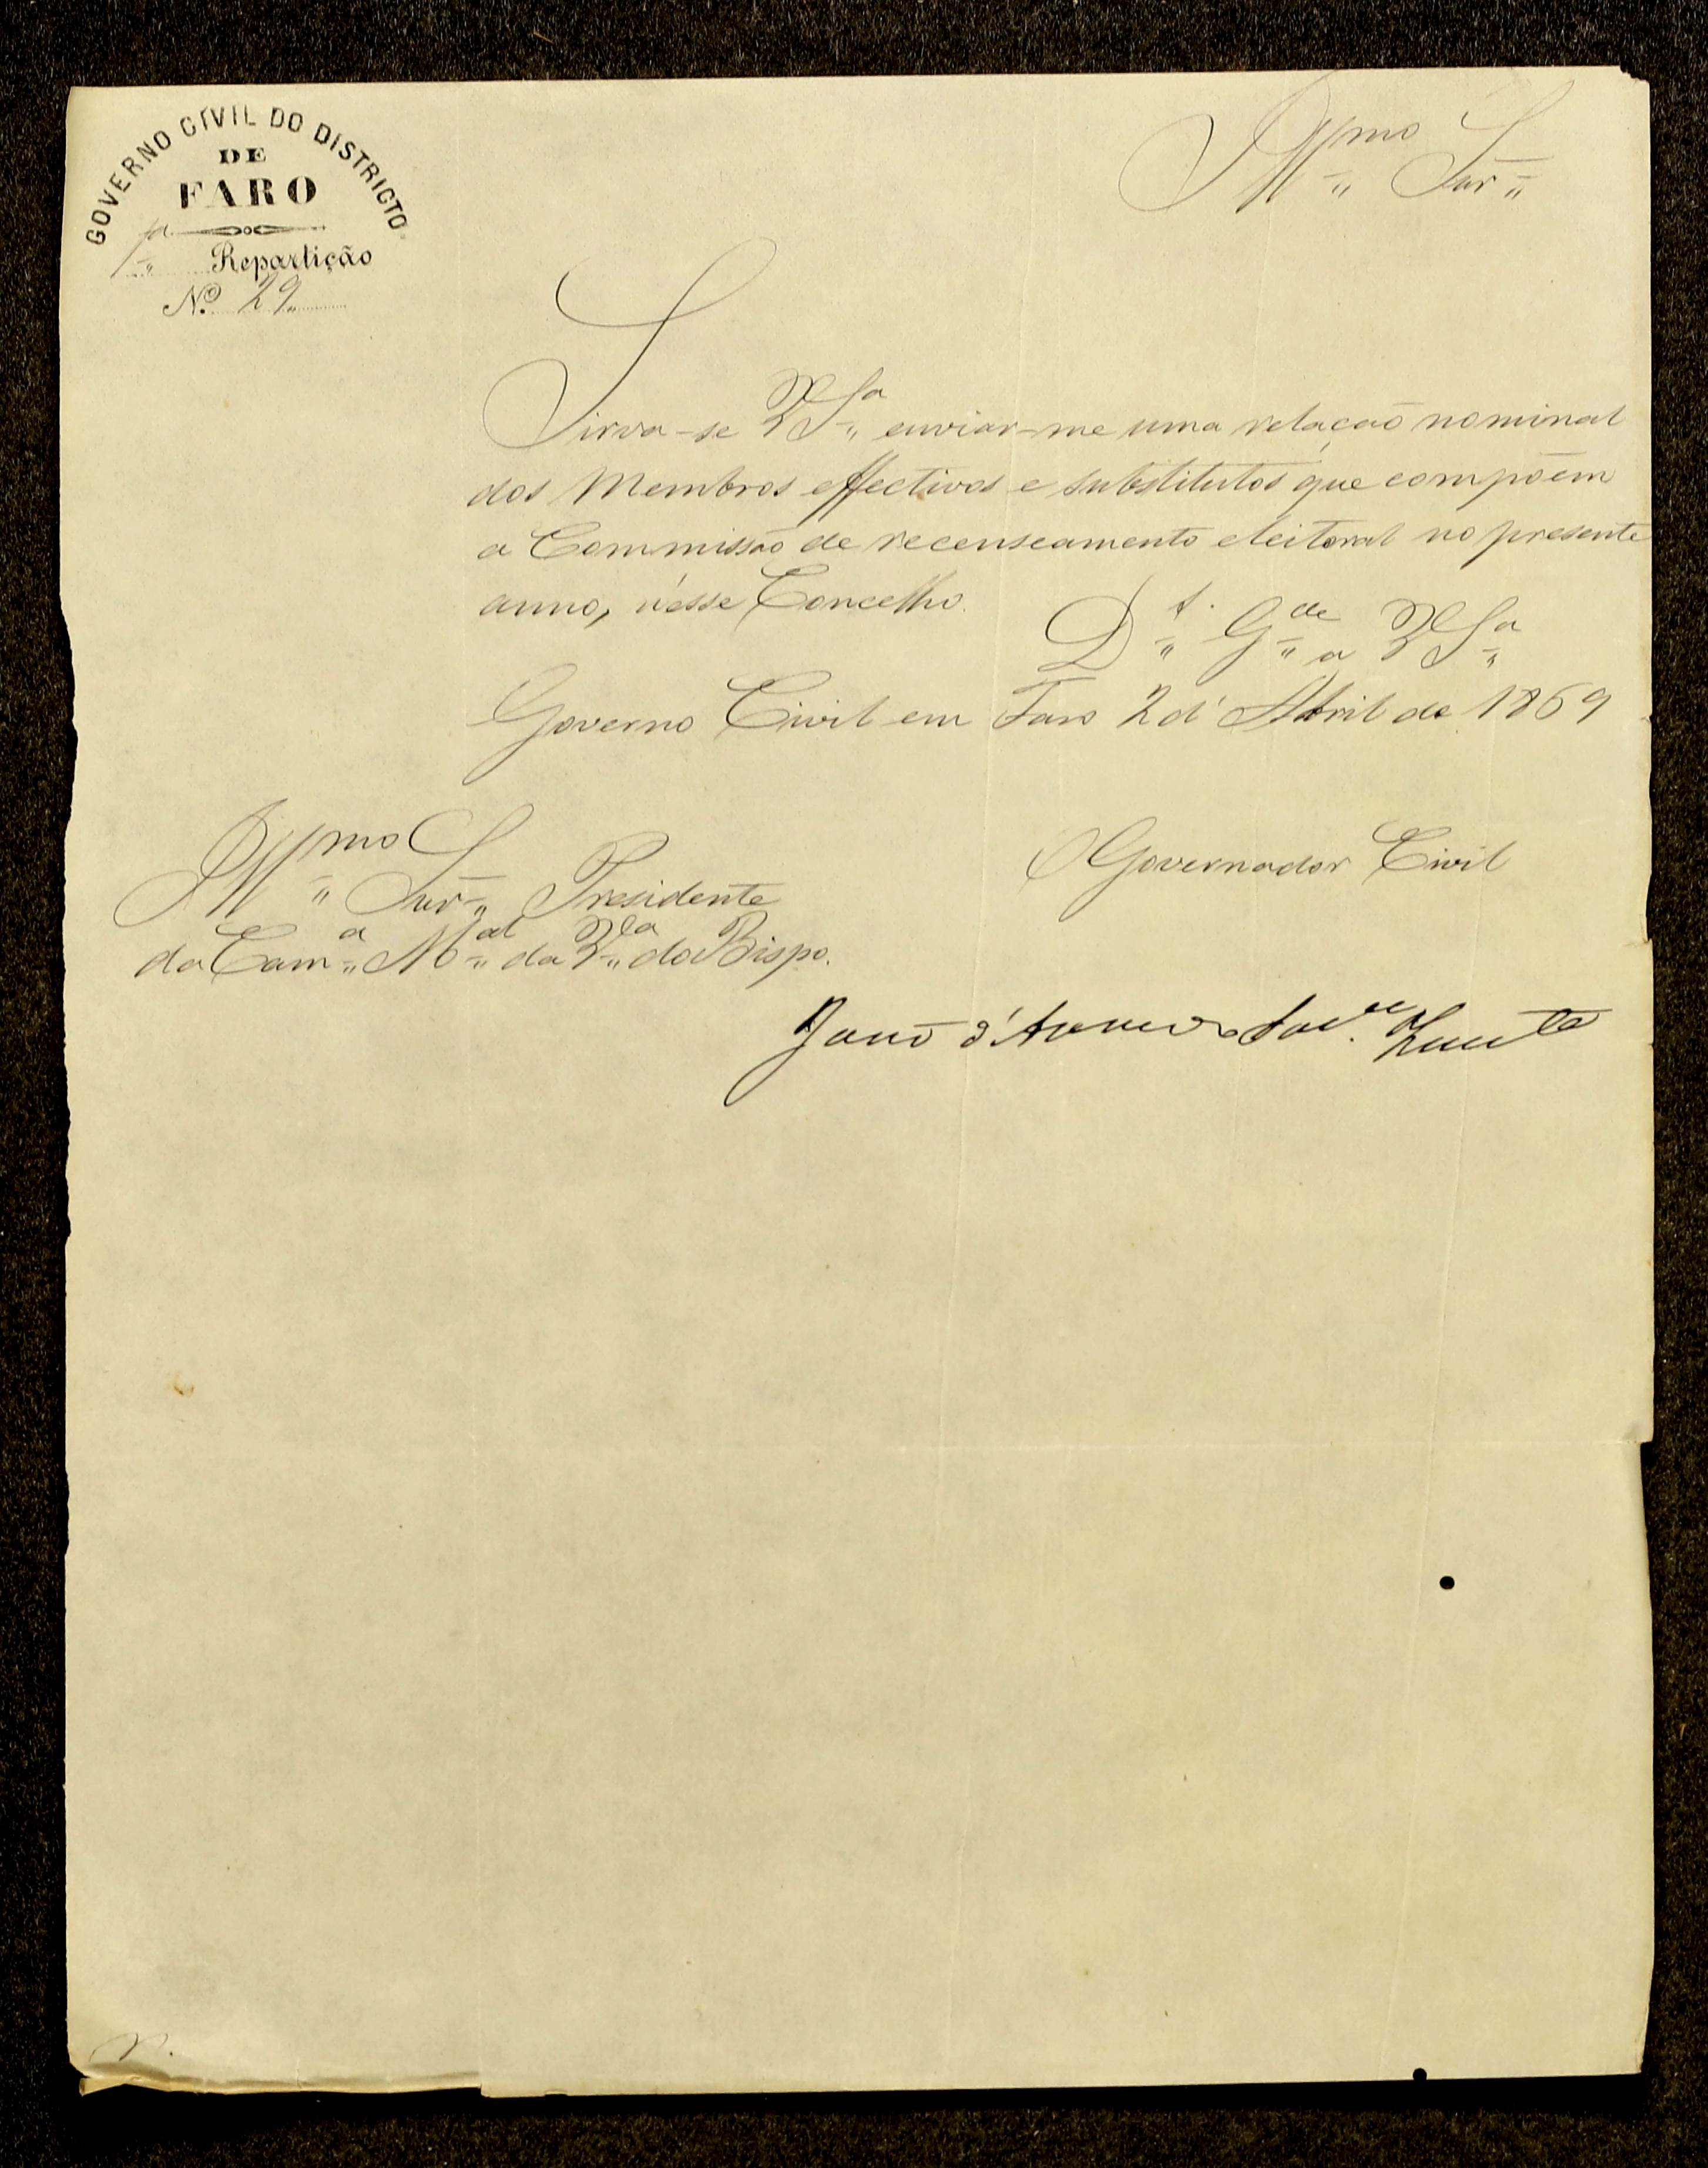 GOVERNO CIVIL DO DISTRICTO
DE
FARO
1ª Repartição
Nº 29
Illmo Snr
Sirva-se VSª enviar-me uma relação nominal
dos Membros effectivos e substitutos que compõem
a Commissão de recenseamento eleitoral no presente
anno, nesse Concelho.
Ds. Gde a VSª
Governo Civil em Faro 2 d'Abril de 1869
O Governador Civil
Illmo Snr Presidente
da Camª Mal da Vla do Bispo.
João d'